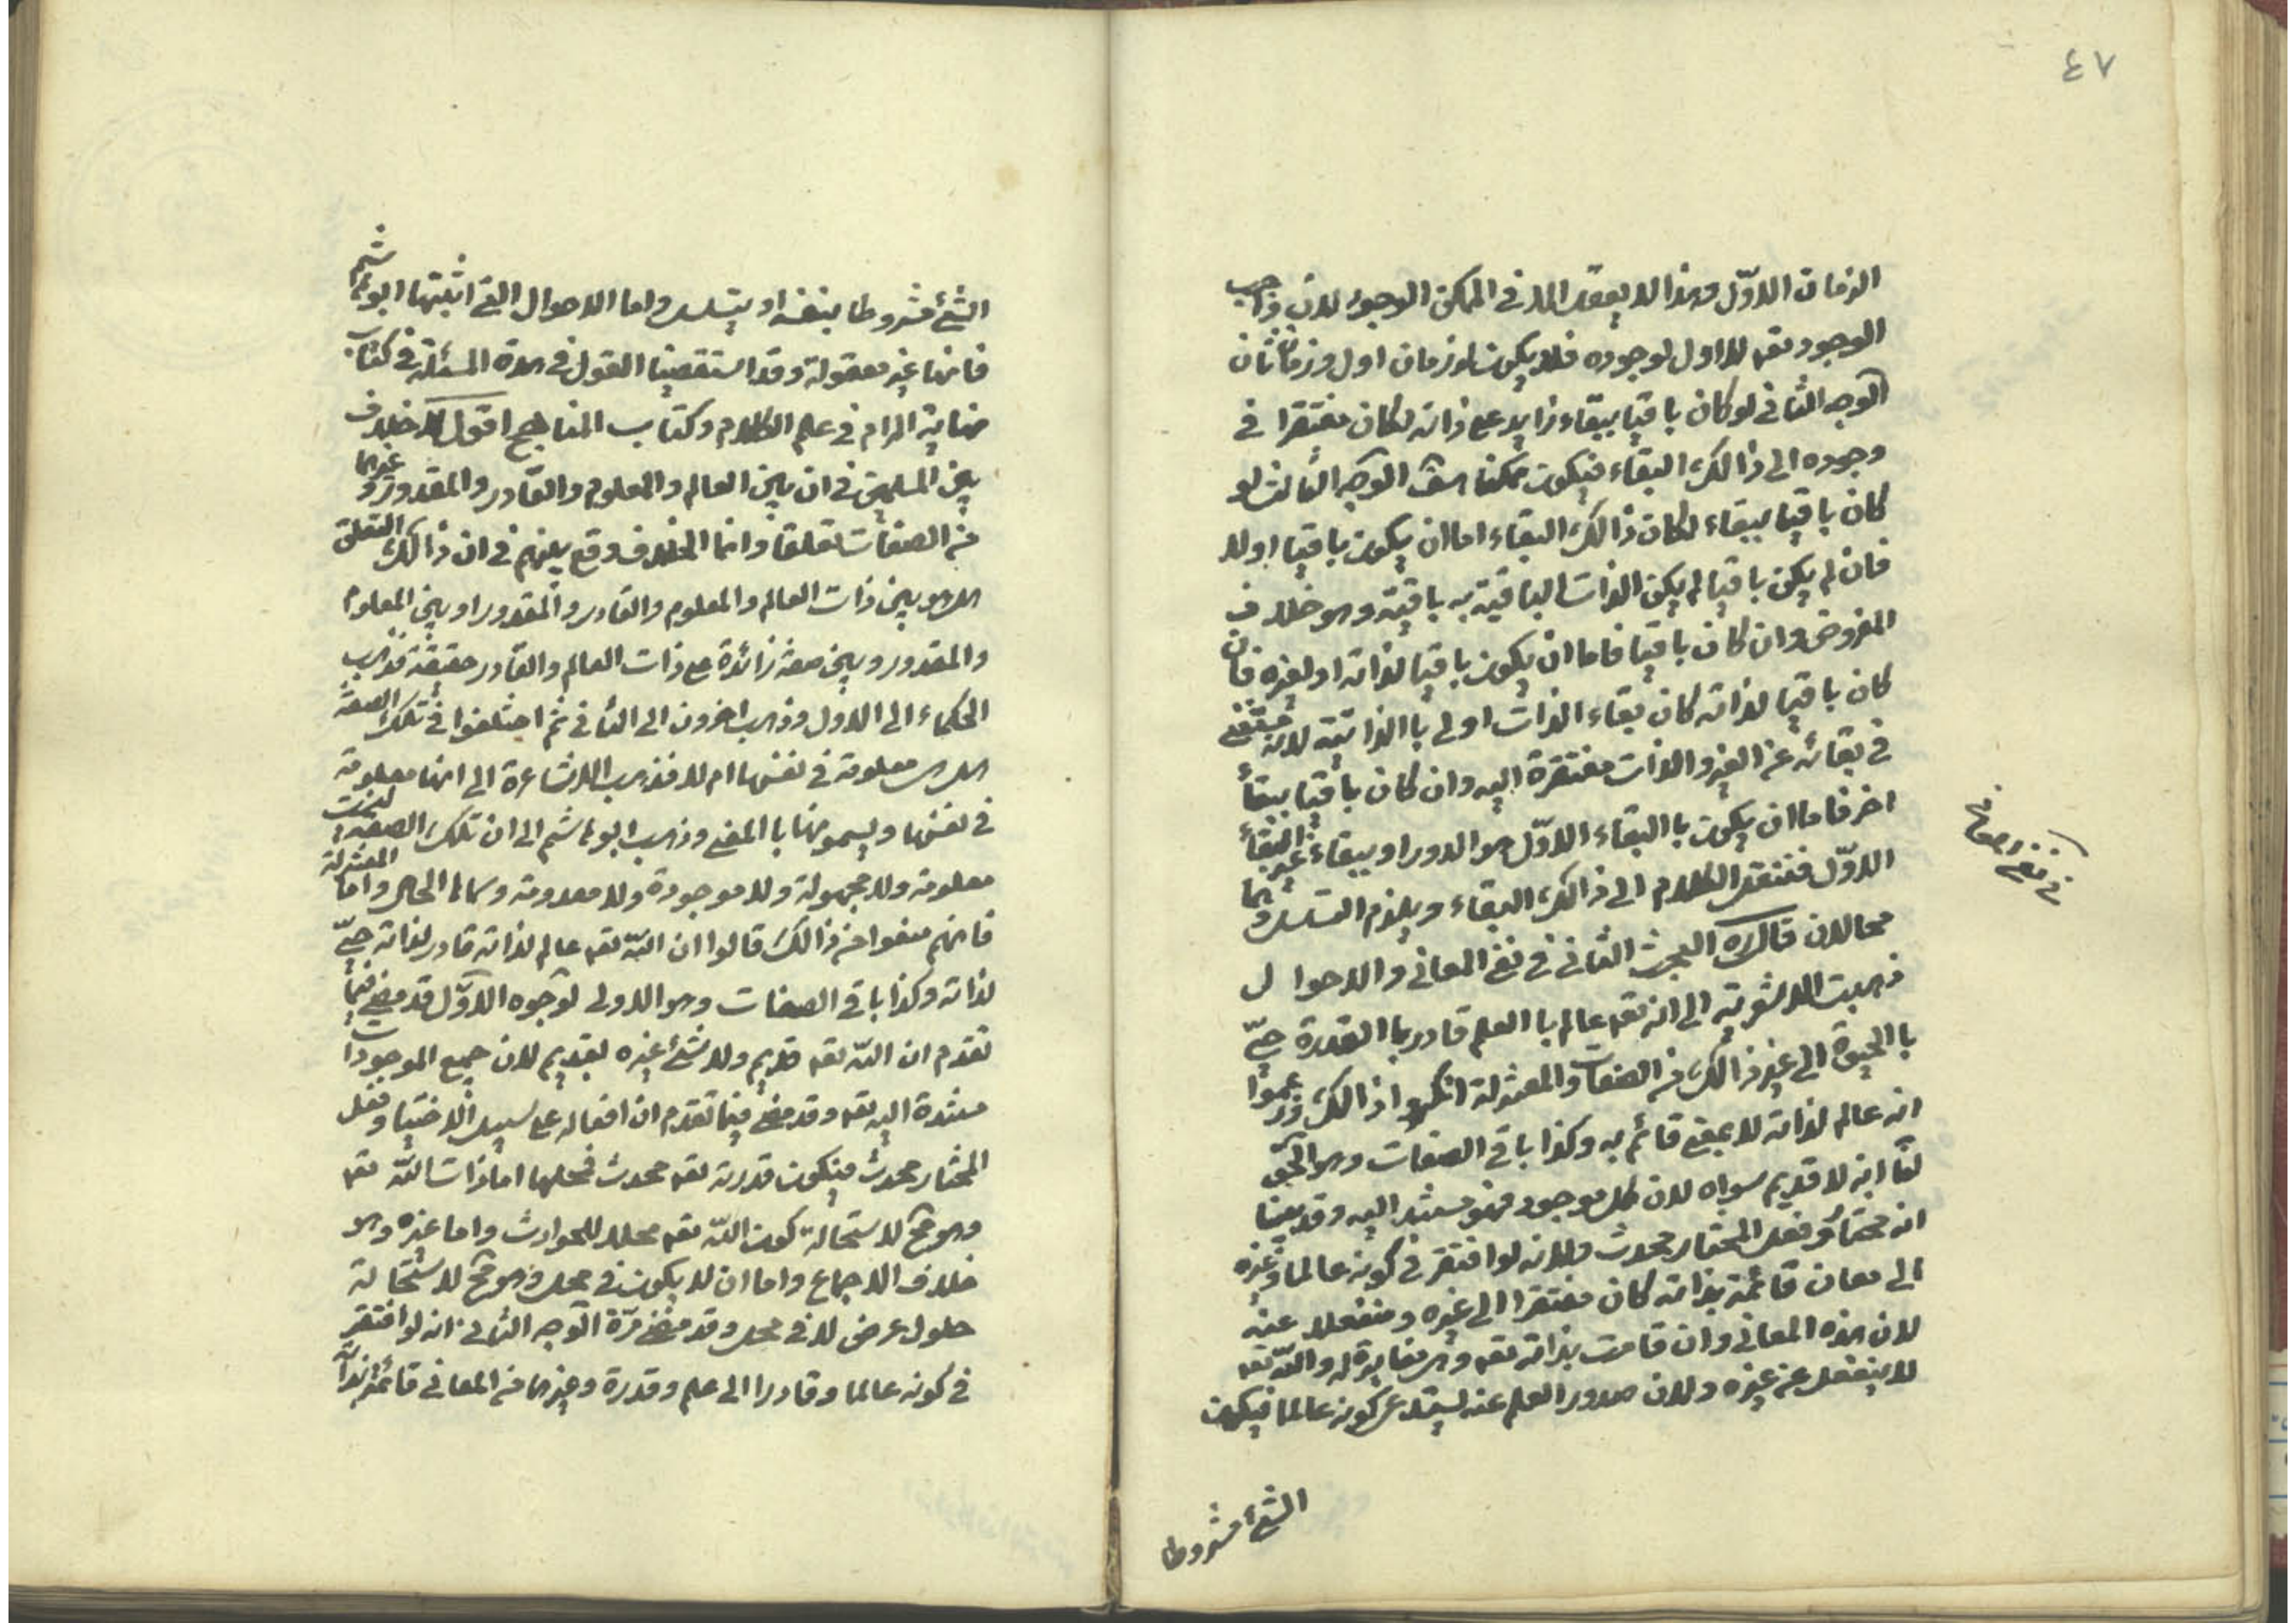 ٤٧
الزمان الاوّل وهذا لا يعقل الا في الممكن الوجود لان واجب
الوجود تعه لا اول لوجوده فلا يكون له زمان اول وزمان ثان
الوجه الثاني لو كان باقيا ببقاء زايد على ذاته لكان مفتقرا في
وجوده الى ذالك البقاء فيكون ممكنا هف الوجه الثالث لو
كان باقيا ببقاء لكان ذالك البقاء اما ان يكون باقيا اولا
فان لم يكن باقيا لم يكن الذات الباقية به باقية وهو خلاف
المفروض وان كان باقيا فاما ان يكون باقيا لذاته او لغيره فان
كان باقيا لذاته كان بقاء الذات اولى با الذاتية لانه مستغنى
في بقائه عن الغير والذات مفتقرة اليه وان كان باقيا ببقأ
اخر فاما ان يكون با البقاء الاوّل هو الدور او ببقاء غير البقأ
الاوّل فننقل الكلام الى ذالك البقاء ويلزم التسلسل وهما
محالان قال ره البحث الثاني في نفي المعاني والاحوال
ذهبت الاشعرية الى انه تعه عالم با العلم قادر با القدرة حيّ
با الحيوة الى غير ذالك من الصفات والمعتزلة انكروا ذالك وزعموا
انه عالم لذاته لا بمعنى قائم به وكذا باقي الصفات وهو الحق
لنا انه لا قديم سواه لان كل موجود فهو مستند اليه وقد بينا
انه مختار وفعل المختار محدث ولانه لو افتقر في كونه عالما وغيره
الى معان قائمة بذاته كان مفتقرا الى غيره ومنفعلا عنه
لان هذه المعاني وان قامت بذاته تعه وهي مغايرة له والله تعه
لا ينفعل عن غيره ولان صدور العلم عنه يستدعى كونه عالما فيكون
الشئ مشروطا
في نفى
الشئ مشروطا بنفسه او يتسلسل واما الاحوال التي اثبتها ابو هاشم
فانها غير معقولة وقد استقصينا القول في هذه المسئلة في كتاب
نهاية المرام في علم الكلام وكتاب المناهج اقول لا خلاف
بين المسلمين في ان بين العالم والمعلوم والقادر والمقدور وغيرهما
من الصفات تعلقا وانما الخلاف وقع بينهم في ان ذالك التعلق
هل هو بين ذات العالم والمعلوم والقادر والمقدور او بين المعلوم
والمقدور وبين صفة زائدة على ذات العالم والقادر حقيقة فذهب
الحكماء الى الاول وذهب اخرون الى الثاني ثم اختلفوا في تلك الصفة
هل هى معلومة في نفسها ام لا فذهب الاشاعرة الى انها معلومة
في نفسها ويسمونها با المعنى وذهب ابو هاشم الى ان تلك الصفة ليست
معلومة ولا مجهولة ولا موجودة ولا معدومة وسماها الحال واما المعتزلة
فانهم منعوا من ذالك قالوا ان الله تعه عالم لذاته قادر لذاته حيّ
لذاته وكذا باقي الصفات وهو الاولى لوجوه الاوّل قد مضى فيما
تقدم ان الله تعه قديم ولا شئ غيره بقديم لان جميع الموجودات
مستندة اليه تعه وقد مضى فيما تقدم ان افعاله على سبيل الاختيار وفعل
المختار محدث فيكون قدرته تعه محدث فمحلها اما ذات الله تعه
وهو مح لاستحالة كون الله تعه محلا للحوادث واما غيره وهو
خلاف الاجماع واما ان لا يكون في محل وهو مح لاستحالة
حلول عرض لا في محل وقد مضى مرّة الوجه الثاني انه لو افتقر
في كونه عالما وقادرا الى علم وقدرة وغيرهما من المعاني قائمة بذاته